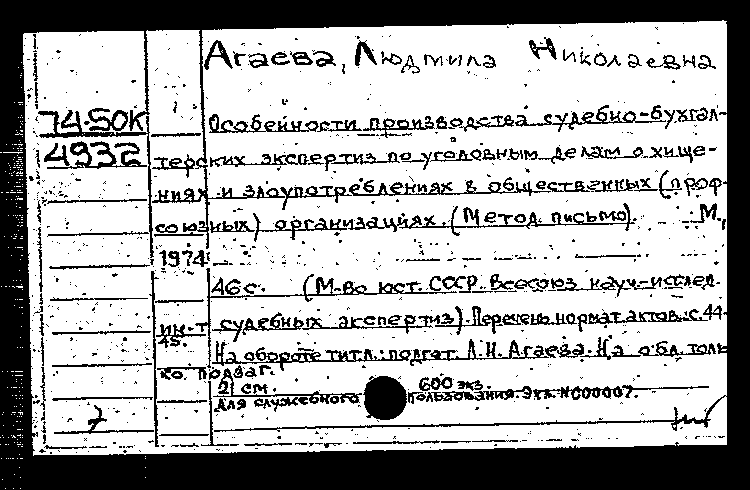 Агаева, Людмила Николаевна
74-50К
4932
Особенности производства судебно-бухгал-
терских экспертиз по уголовным делам о хище-
ниях и злоупотреблениях в общественных (проф-
союзных) организациях. (Метод. письмо). М.,
1974
46с. (М-во юст. СССР. Всесоюз науч-исслед.
ин-т судебных экспертиз). Перечень нормат. актов: с. 44-
45.
На обороте тит.л.: подгот. Л.Н. Агаева. На обл. толь
ко подзаг.
21 см. 600 экз.
Для служебного пользования. Экз. №000007.
7